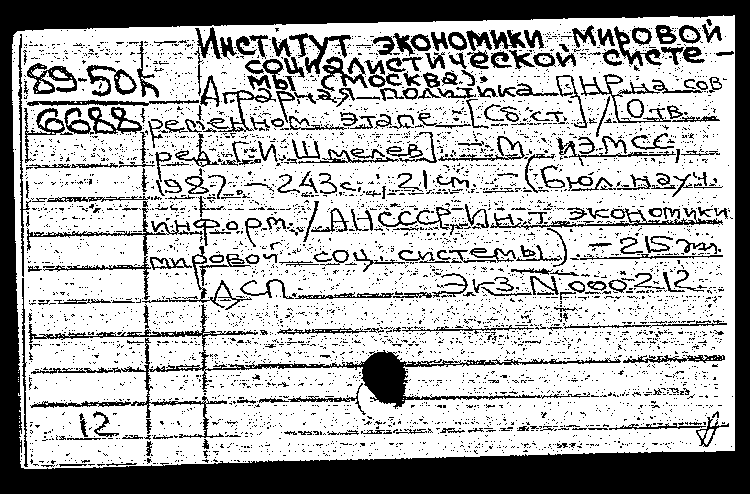 Институт экономики мировой
социалистической систе-
мы (Москва).
89-50к
6688
Аграрная политика ПНР на сов-
ременном этапе : [Сб. ст.] / [Отв.
ред. Г.И. Шмелев]. - М. : ИЭМСС,
1987. - 243 с. ; 21 см. - (Бюл. науч.
информ. / АН СССР, Ин-т экономики
мировой соц. системы). - 215 экз.
ДСП. Экз. N 000212
12